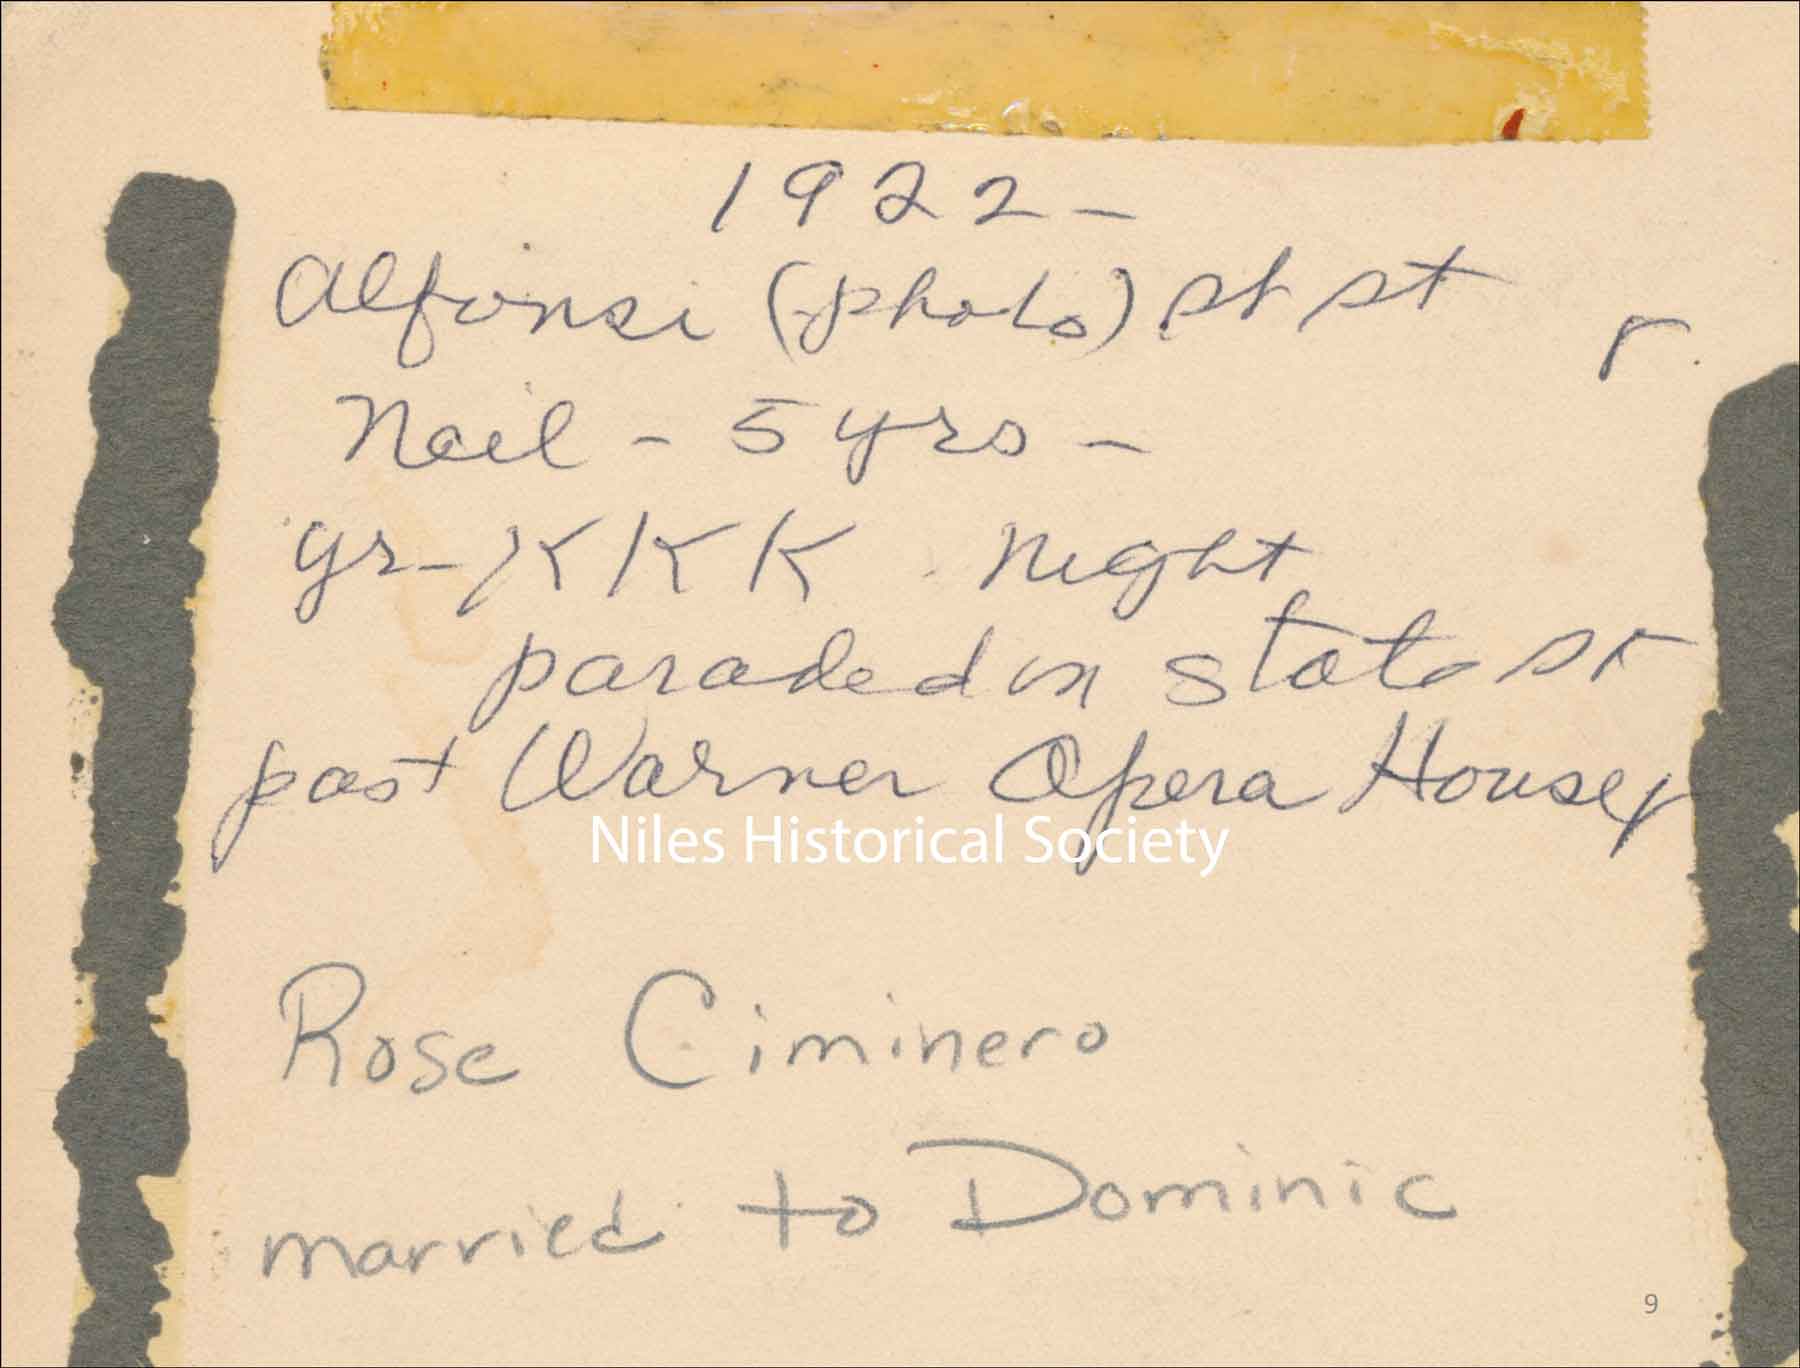 1922 –
Alfonsi (photo) st st
Neil – 5 yrs –
yr – KKK night
paraded in State St
past Warner Opera House
Niles Historical Society
Rose Ciminero
married to Dominic
9